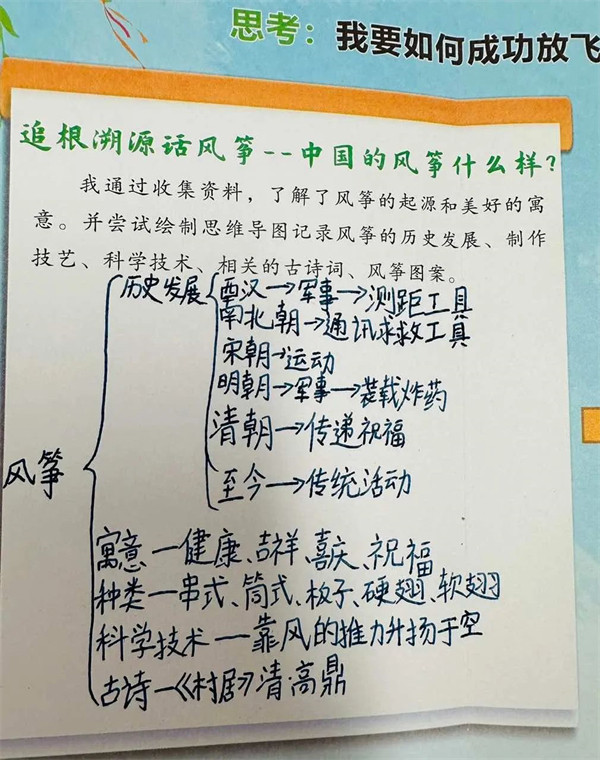 思考：我要如何成功放飞
追根溯源话风筝--中国的风筝什么样？
我通过收集资料，了解了风筝的起源和美好的寓
意。并尝试绘制思维导图记录风筝的历史发展、制作
技艺、科学技术、相关的古诗词、风筝图案。
风筝
历史发展
西汉→军事→测距工具
南北朝→通讯求救工具
宋朝→运动
明朝→军事→装载炸药
清朝→传递祝福
至今→传统活动
寓意—健康、吉祥、喜庆、祝福
种类—串式、筒式、板子、硬翅、软翅
科学技术—靠风的推力升扬于空
古诗—《村居》清·高鼎